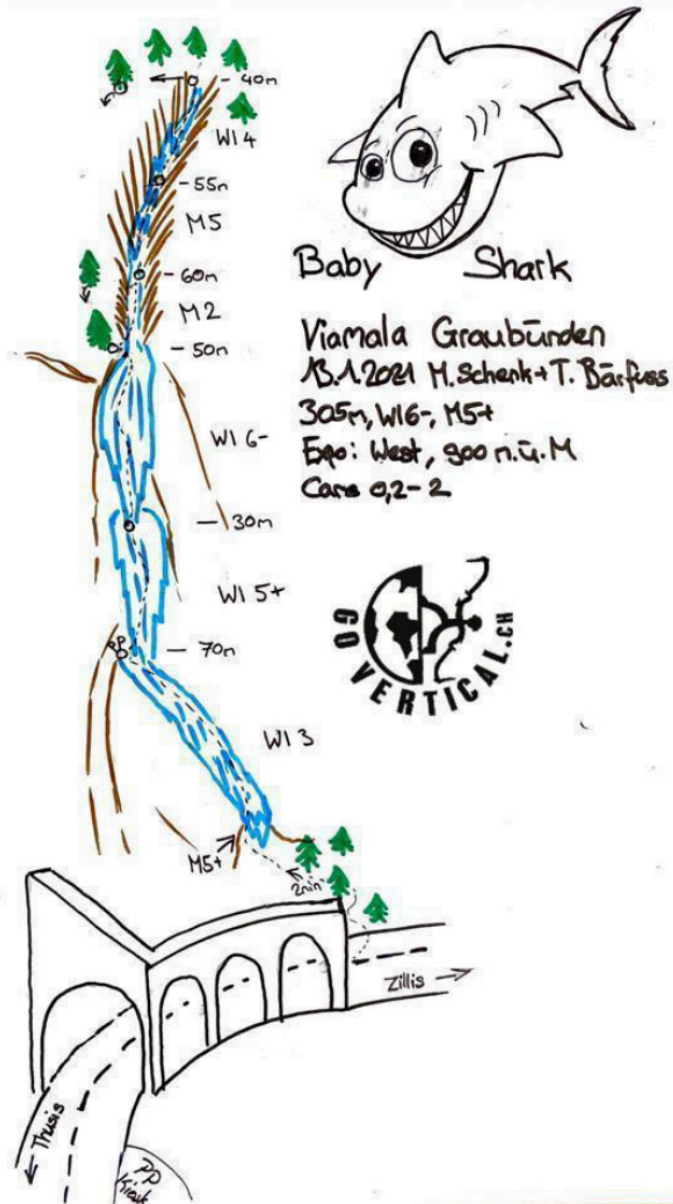 40m
WI 4
55m
M5
60m
M2
50m
WI 6-
30m
WI 5+
70m
WI 3
M5+
2min
Baby Shark
Viamala Graubünden
13.1.2021 M.Schenk + T. Bärfuss
305m, WI6-, M5+
Expo: West, 900 m.ü.M
Cams 0,2-2
GO VERTICAL.CH
Zillis
Thusis